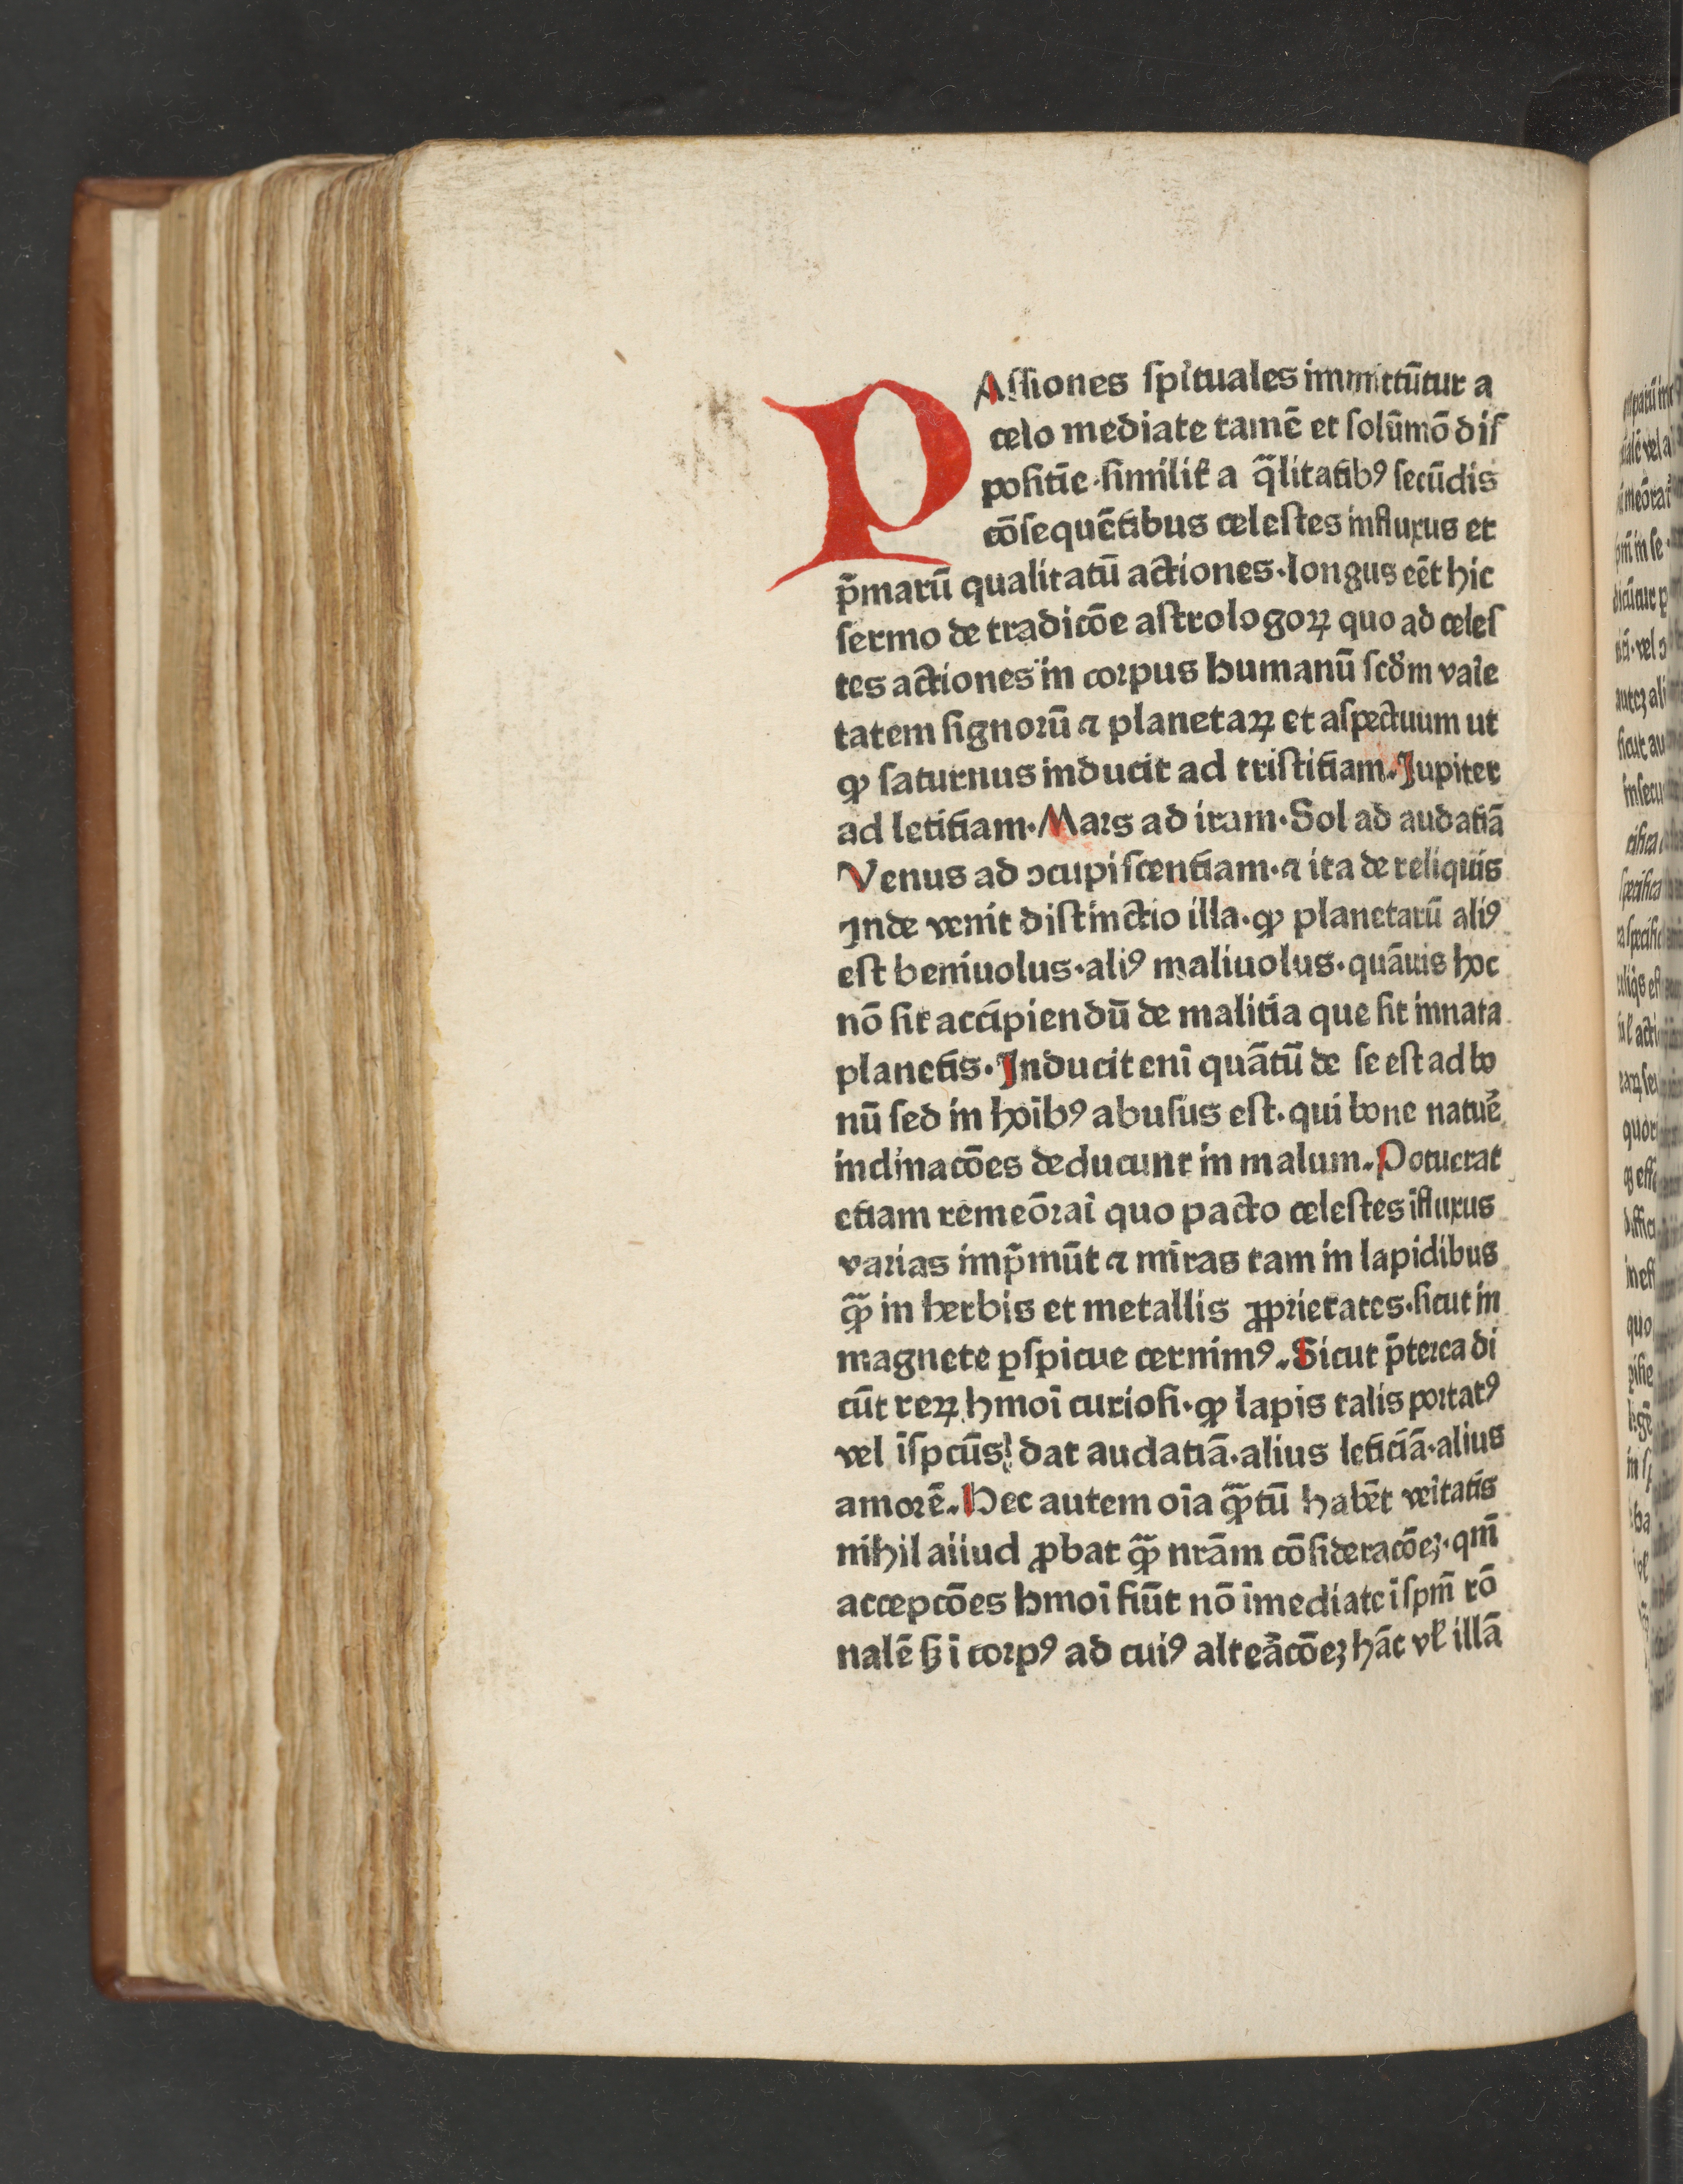 PAſſiones ſpi̅tuales immittūtur a
celo mediate tamē et ſolūmō diſ
poſitīe·ſimilit̄ a q̄litatibꝰ ſecūdis
cōſequētibus celeſtes influxus et
p̄marū qualitatū actiones·longus eēt hic
ſermo de tradicōe aſtrologoꝝ quo ad celeſ
tes actiones in corpus humanū ſcd̓m varie
tatem ſignorū ⁊ planetaꝝ et aſpectuum ut
ꝙ ſaturnus inducit ad triſtitiam. Jupiter
ad letitiam·Mars ad iram·Sol ad audatiā
Venus ad ɔcupiſcentiam·⁊ ita de reliquis
Jnde venit diſtinctio illa·ꝙ planetarū aliꝰ
eſt beniuolus·aliꝰ maliuolus·quāuis hoc
nō ſit accipiendū de malitia que ſit innata
planetis·Jnducit enī quātū de ſe eſt ad bo
nū ſed in hoībꝰ abuſus eſt·qui bone natuē
inclinacōes deducunt in malum. Potuerat
etiam remeōrai̅ quo pacto celeſtes īfluxus
varias imp̄mūt ⁊ miras tam in lapidibus
ꝙ̄ in herbis et metallis ꝓprietates·ſicut in
magnete ꝑſpicue cernimꝰ. Sicut p̄terea di
cūt reꝝ hmoī curioſi·ꝙ lapis talis portatꝰ
vel īſpcūs dat audatiā·alius leticiā·alius
amorē. Hec autem oīa ꝙ̄tū habēt veītatis
nihil aliud ꝓbat ꝙ̄ nrām cōſideracōeʒ·qm̄
accepcōes hmoī fiūt nō īmediate ī ſpm̄ rō
nalē ſꝫ ī corpꝰ ad cuiꝰ alteācōeʒ hāc vl̄ illā